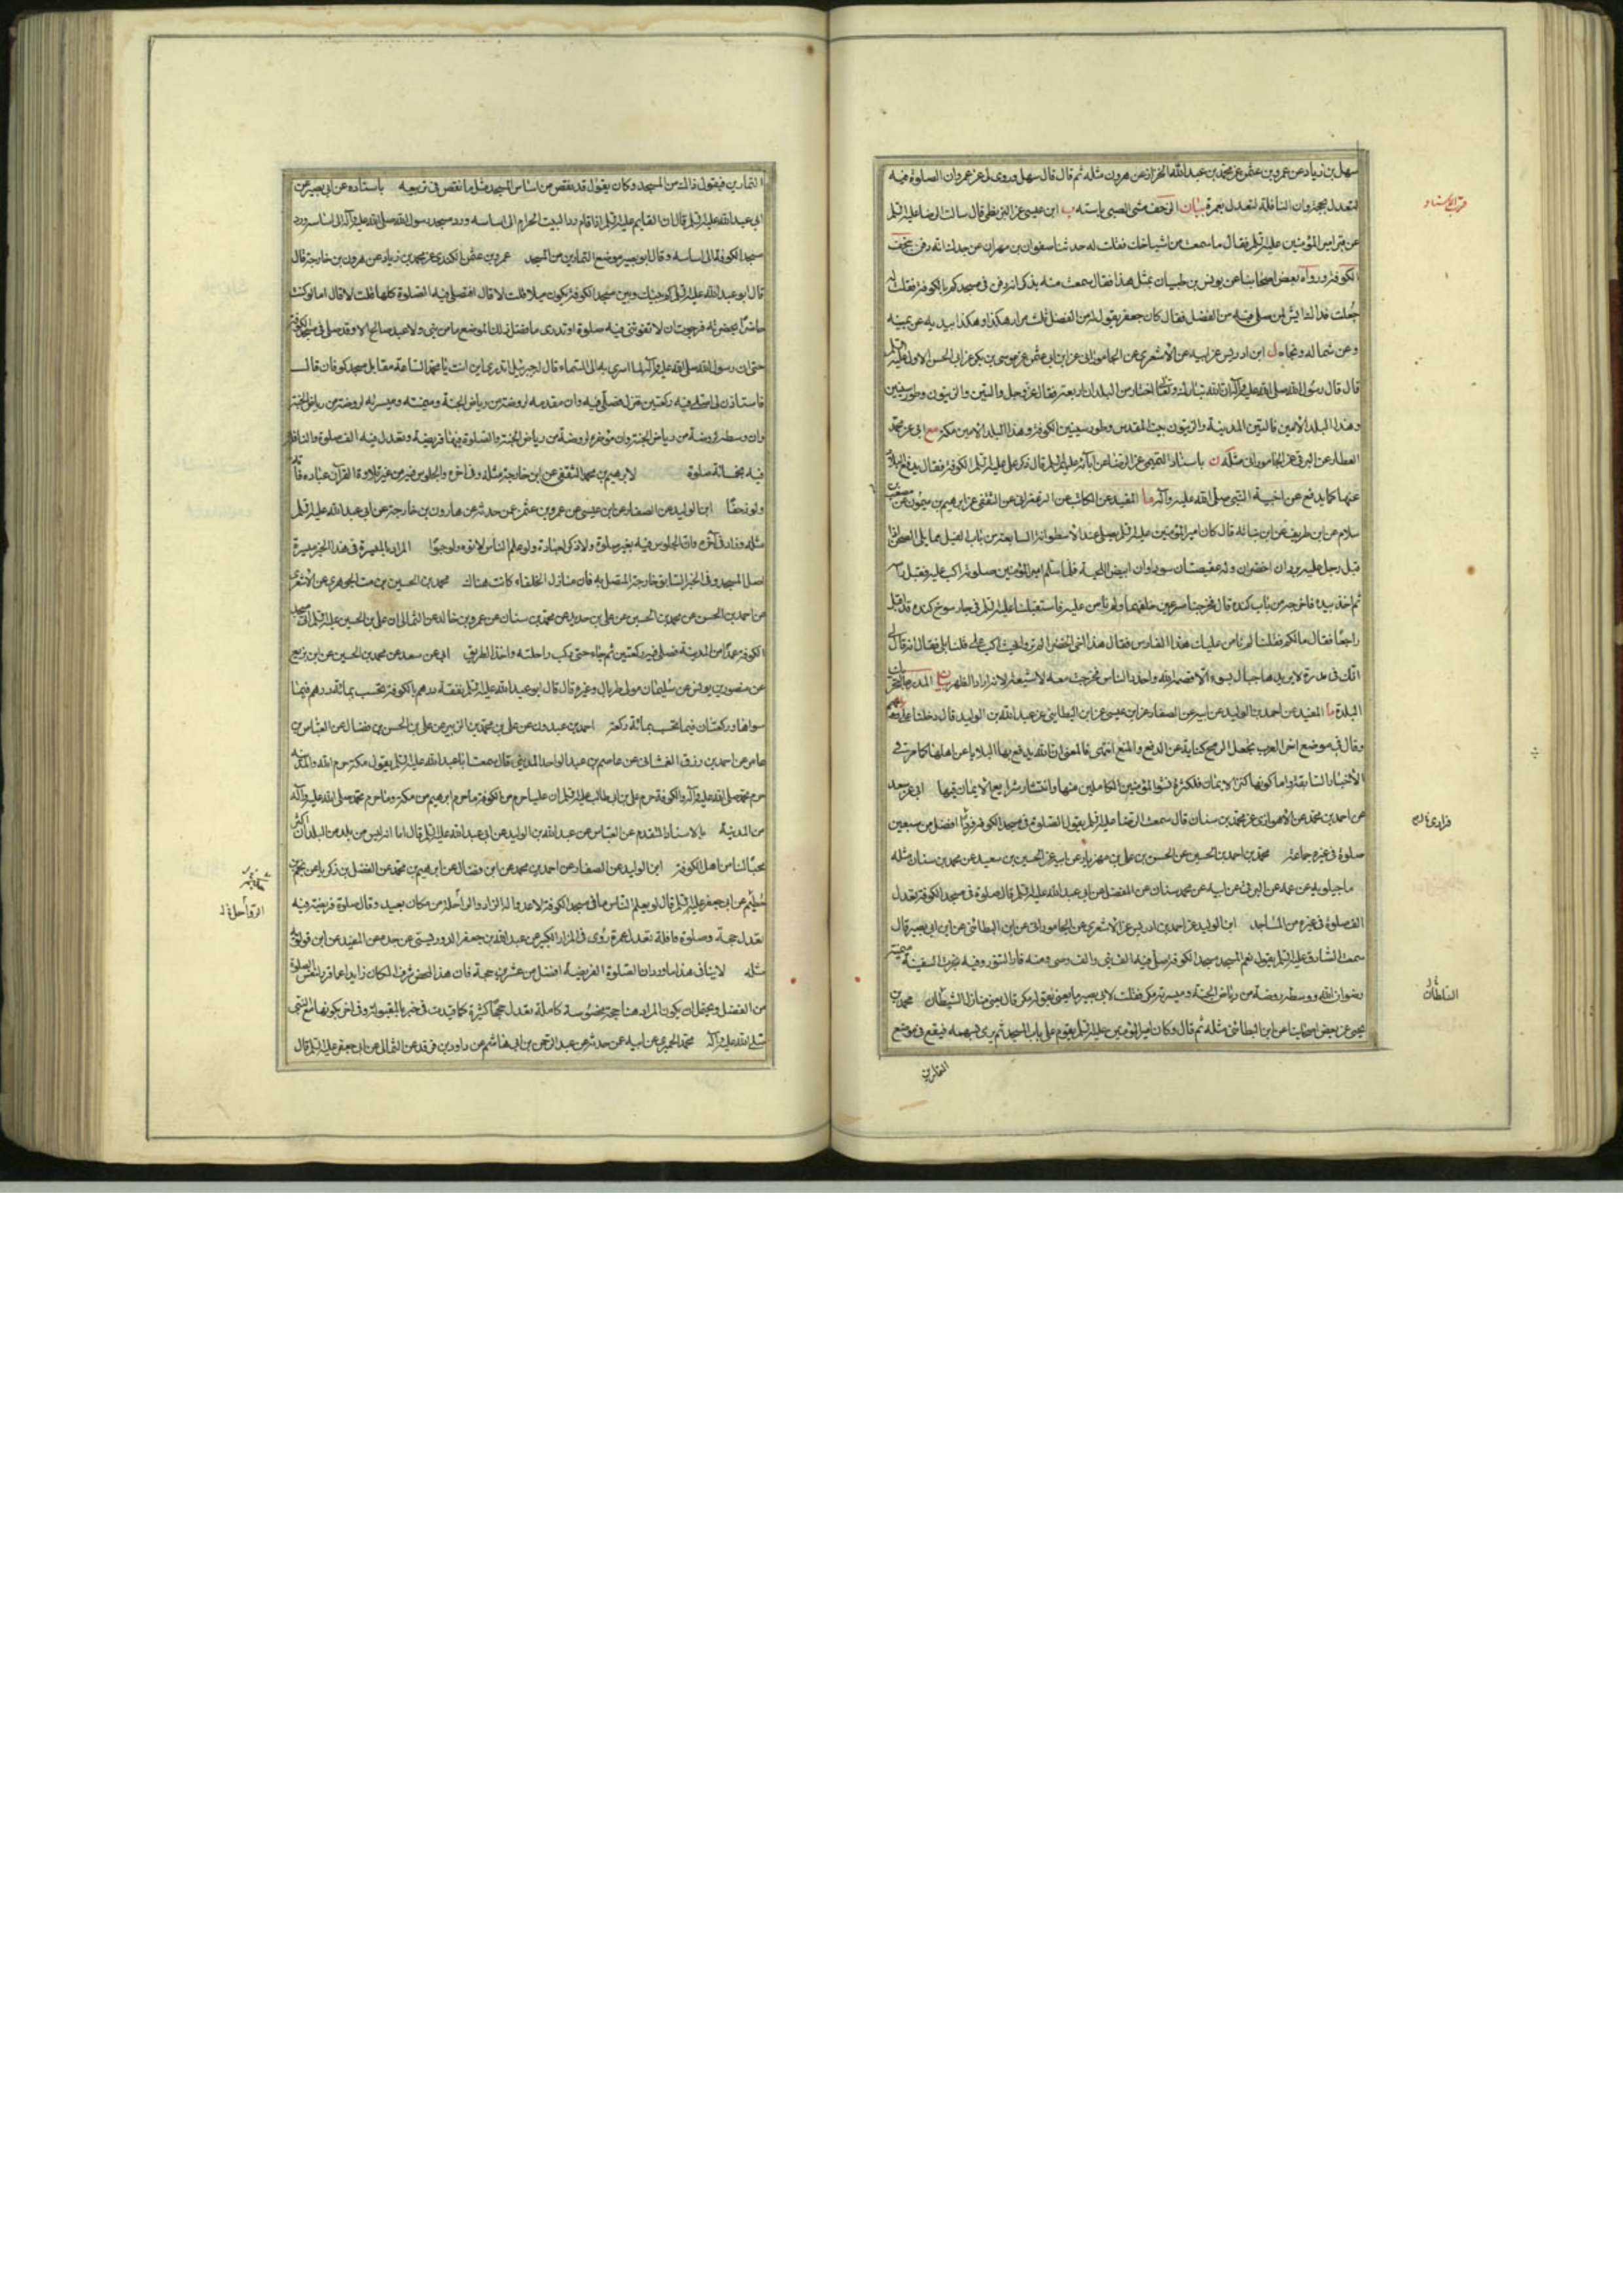 سهل بن زياد عن عمرو بن عثمن عن محمد بن عبد الله الخزاز عن هرون مثله ثم قال قال سهل وروى لى عن عمرو ان الصلوة فيه
لتعدل بحجة وان النافلة لتعدل بعمرة بيان الزحف مشى الصبى باسته ب ابن عيسى عن البزنطى قال سالت الرضا عليه السلم
عن قبر امير المؤمنين عليه السلم فقال ما سمعت من اشياخك فقلت له حدثنا صفوان بن مهران عن جدك انه دفن بنجف
الكوفة ورواه بعض اصحابنا عن يونس بن ظبيان بمثل هذا فقال سمعت منه يذكر انه دفن فى مسجدكم بالكوفة فقلت له
جعلت فداك ايش لمن صلى فيه من الفضل فقال كان جعفر يقول له من الفضل ثلث مرار هكذا وهكذا بيديه عن يمينه
وعن شماله وتجاهه ل ابن ادريس عن ابيه عن الأشعرى عن الجامورانى عن ابن ابى عثمن عن موسى بن بكر عن ابى الحسن الاول عليه السلم
قال قال رسول الله صلى الله عليه وآله ان الله تبارك وتعالى اختار من البلدان اربعة فقال عز وجل والتين والزيتون وطور سينين
وهذا البلد الأمين فالتين المدينة والزيتون بيت المقدس وطور سينين الكوفة وهذا البلد الامين مكة مع ابى عن محمد
العطار عن البرقى عن الجامورانى مثله ن باسناد التميمى عن الرضا عن آبائه عليهم السلم قال ذكر على عليه السلم الكوفة فقال يدفع البلاء
عنها كما يدفع عن اخبية النبى صلى الله عليه وآله ما المفيد عن الكاتب عن الزعفرانى عن الثقفى عن ابرهيم بن ميمون عن مصعب بن
سلام عن ابن طريف عن ابن نباته قال كان امير المؤمنين عليه السلم يصلى عند الأسطوانة السابعة من باب الفيل مما يلى الصحن اذا
قبل رجل عليه بردان اخضران وله عقيصتان سوداوان ابيض اللحية فلما سلم امير المؤمنين من صلوته اكب عليه فقبل راسه
ثم اخذ بيده فاخرجه من باب كنده قال فخرجنا مسرعين خلفهما ولم نامن عليه فاستقبلنا عليه السلم فى جارسوج كنده قد اقبل
راجعا فقال ما لكم فقلنا لم نامن عليك هذا الفارس فقال هذا اخى الخضر الم تروا حيث اكب على قلنا بلى فقال انه قال لى
انك فى مدرة لا يريدها جبار بسوء الا قصمه الله واحذر الناس فخرجت معه لاشيعه لانه اراد الظهر بيان المدرة بالتحريك
البلدة ما المفيد عن احمد بن الوليد عن ابيه عن الصفار عن ابن عيسى عن ابن البطاينى عن عبد الله بن الوليد قال دخلنا على
وقال فى موضع اخر العرب تجعل الرمح كناية عن الدفع والمنع انتهى فالمعنى ان الله يدفع بها البلايا عن اهلها كما مر فى
الأخبار السابقة واما كونها كنز الايمان فلكثرة نشو المؤمنين الكاملين منها وانتشار شرايع الأيمان فيها ابى عن سعد
عن احمد بن محمد عن الأهوازى عن محمد بن سنان قال سمعت الرضا عليه السلم يقول الصلوة فى مسجد الكوفة فردا افضل من سبعين
صلوة فى غيره جماعة محمد بن احمد بن الحسين عن الحسن بن على بن مهزيار عن ابيه عن الحسين بن سعيد عن محمد بن سنان مثله
ماجيلويه عن عمه عن البرقى عن ابيه عن محمد بن سنان عن المفضل عن ابى عبد الله عليه السلم قال صلوة فى مسجد الكوفة تعدل
الف صلوة فى غيره من المساجد ابن الوليد عن احمد بن ادريس عن الأشعرى عن الجامورانى عن ابن البطائنى عن ابى بصير قال
سمعت الصادق عليه السلم يقول نعم المسجد مسجد الكوفة صلى فيه الف نبى والف وصى ومنه فار التنور وفيه نجرت السفينة ميمنته
رضوان الله ووسطه روضة من رياض الجنة وميسرته مكر فقلت لابى بصير ما يعنى بقوله مكر قال يعنى منازل الشيطان محمد بن
يحيى عن بعض اصحابنا عن ابن البطائنى مثله ثم قال وكان امير المؤمنين عليه السلم يقوم على باب المسجد ثم يرمى بسهمه فيقع فى موضع
التمارين
قرب الاسناد
فرادى
السلطان
التمارين فيقول ذاك من المسجد وكان يقول قد نقص من اساس المسجد مثل ما نقص فى تربيعه باسناده عن ابى بصير عن
ابى عبد الله عليه السلم قال ان القايم عليه السلم اذا قام رد البيت الحرام الى اساسه ورد مسجد رسول الله صلى الله عليه وآله الى اساسه ورد
مسجد الكوفة الى اساسه وقال ابو بصير موضع التمارين من المسجد عمرو بن عثمن الكندى عن محمد بن زياد عن هرون بن خارجة قال
قال ابو عبد الله عليه السلم كم بينك وبين مسجد الكوفة يكون ميلا قلت لا قال افتصلى فيه الصلوة كلها قلت لا قال اما لو كنت
حاضرا بحضرته لرجوت ان لا تفوتنى فيه صلوة او تدرى ما فضل ذلك الموضع ما من نبى ولا عبد صالح الا وقد صلى فى مسجد الكوفة
حتى ان رسول الله صلى الله عليه وآله لما اسرى به الى السماء قال له جبرئيل اتدرى اين انت يا محمد الساعة مقابل مسجد كوفان قال
فاستاذن لى اصلى فيه ركعتين فنزل فصلى فيه وان مقدمه لروضة من رياض الجنة وميمنته وميسرته لروضة من رياض الجنة
وان وسطه لروضة من رياض الجنة وان مؤخره لروضة من رياض الجنة والصلوة فيه فريضة وتعدل فيه الف صلوة والنافلة
فيه بخمسائة صلوة لابرهيم بن محمد الثقفى عن ابن خارجة مثله وفى آخره والجلوس فيه من غير تلاوة القرآن عباده فا
ولو زحفا ابن الوليد عن الصفار عن ابن عيسى عن عمرو بن عثمن عن حدثه عن هارون بن خارجة عن ابى عبد الله عليه السلم
مثله وزاد فى آخره وان الجلوس فيه بغير صلوة ولا ذكر لعبادة ولو علم الناس لاتوه ولو حبوا المراد بالميسرة فى هذا الخبر ميسرة
اصل المسجد وفى الخبر السابق خارجه المتصل به فان منازل الخلفاء كانت هناك محمد بن الحسين بن مت الجوهرى عن الأشعرى
عن احمد بن الحسن عن محمد بن الحسين عن على بن حديد عن محمد بن سنان عن عمرو بن خالد عن الثمالى ان على بن الحسين عليه السلم اتى مسجد
الكوفة عمدا من المدينة فصلى فيه ركعتين ثم جاء حتى ركب راحلته واخذ الطريق ابى عن سعد عن محمد بن الحسين عن ابن بزيع
عن منصور بن يونس عن سليمان مولى طربال وغيره قال قال ابو عبد الله عليه السلم نفقة درهم بالكوفة تحسب بمائة درهم فيما
سواها وركعتان فيها تحسب بمائة ركعة احمد بن عبدون عن على بن محمد بن الزبير عن على بن الحسن بن فضال عن العباس بن
عامر عن احمد بن رزق الغمشانى عن عاصم بن عبد الواحد المدينى قال سمعت ابا عبد الله عليه السلم يقول مكة حرم الله والمدينة
حرم محمد صلى الله عليه وآله والكوفة حرم على بن ابى طالب عليه السلم ان عليا حرم من الكوفة ما حرم ابرهيم من مكة وما حرم محمد صلى الله عليه وآله
من المدينة بالاسناد المتقدم عن العباس عن عبد الله بن الوليد عن ابى عبد الله عليه السلم قال اما انه ليس من بلد من البلدان اكثر
محبا لنا من اهل الكوفة ابن الوليد عن الصفار عن احمد بن محمد عن ابن فضال عن ابرهيم بن محمد عن الفضل بن زكريا عن نجم بن
حطيم عن ابى جعفر عليه السلم قال لو يعلم الناس ما فى مسجد الكوفة لاعدوا له الزاد والراحلة من مكان بعيد وقال صلوة فريضة فيه
تعدل حجة وصلوة نافلة تعدل عمرة روى فى المزار الكبير عن عبد الله بن جعفر الدوريستى عن جده عن المفيد عن ابن قولويه
مثله لا ينافى هذا ما ورد ان الصلوة الفريضة افضل من عشرين حجة فان هذا المحض شرف المكان زايدا عما قرر لنفس الصلوة
من الفضل ويحتمل ان يكون المراد هنا حجة مخصوصة كاملة تعدل حججا كثيرة كما قيدت فى خبر بالمقبولة وفى اخر بكونها مع النبى
صلى الله عليه وآله محمد الحميرى عن ابيه عن حدثه عن عبد الرحمن بن ابى هاشم عن داود بن فرقد عن الثمالى عن ابى جعفر عليه السلم قال
الرواحل